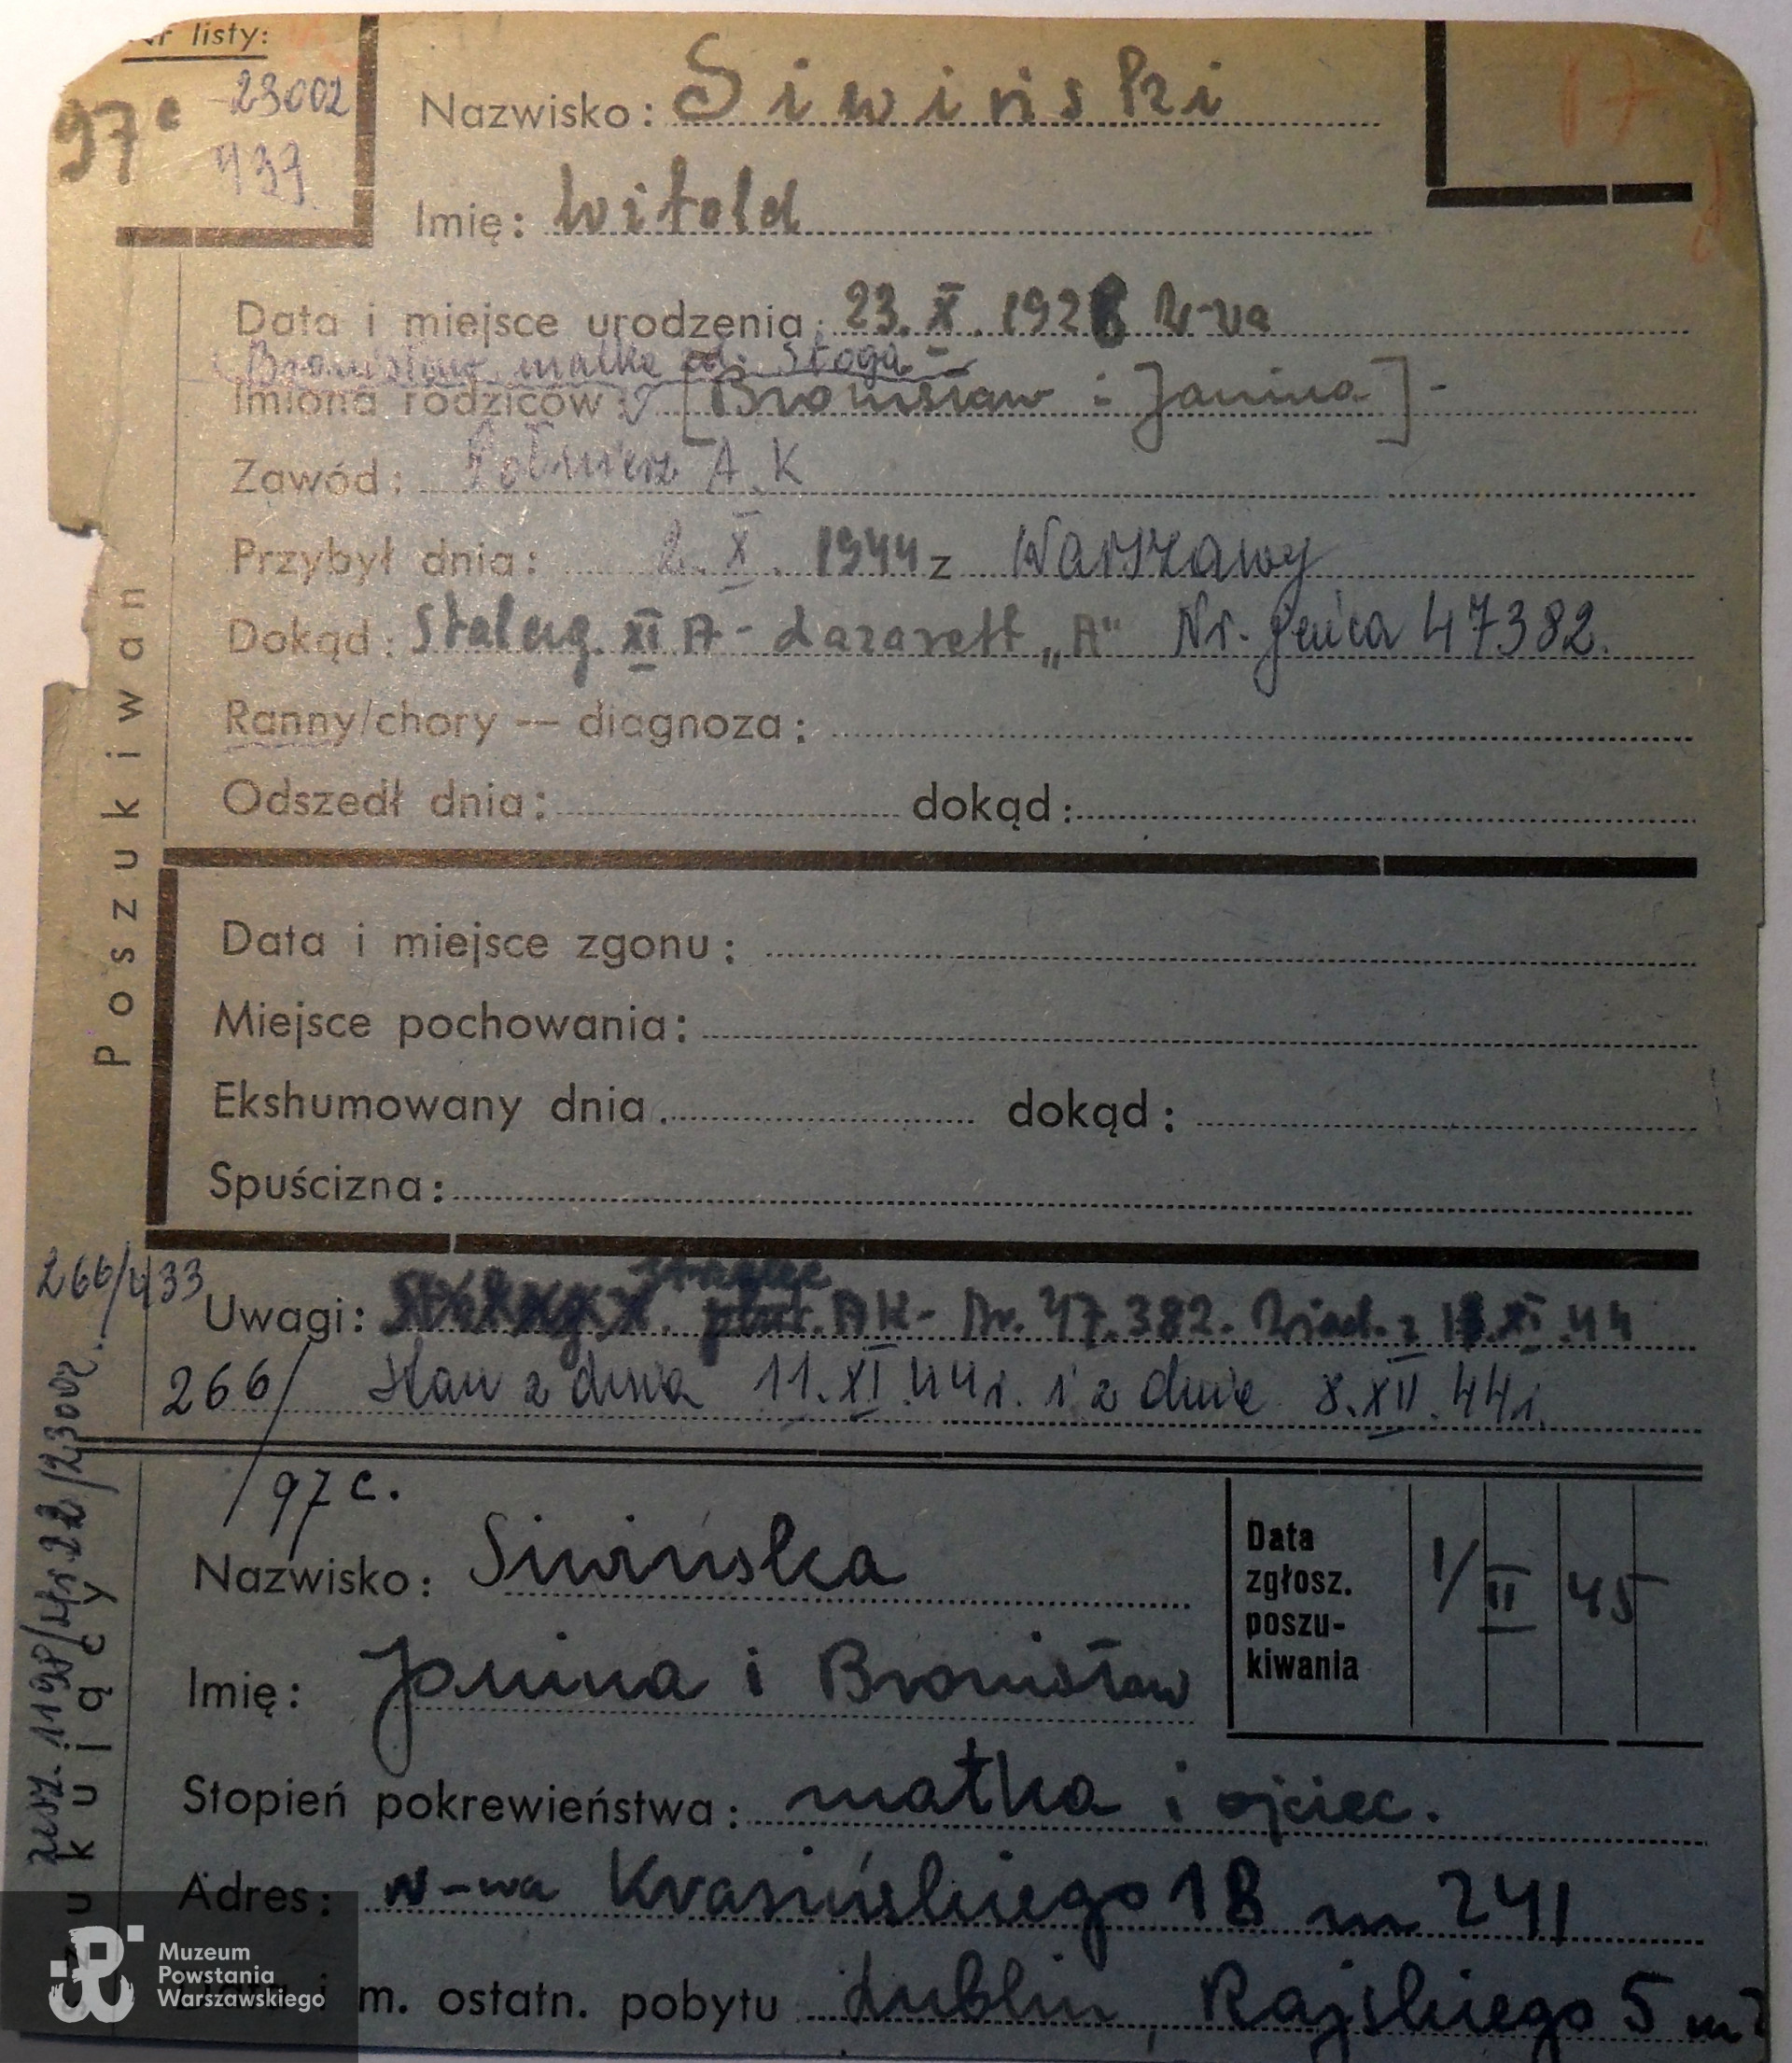 Nr listy:
97c 23002
433
Nazwisko: Siwiński
Imię: Witold
17
Data i miejsce urodzenia: 23. X. 1928 W-va
Bronisław, matka od: Stoga -
Imiona rodziców: [Bronisław i Janina] -
Zawód: Żołnierz A.K
Przybył dnia: 2. X. 1944 z Warszawy
Dokąd: Stalag. XI A - Lazarett „A" Nr. jeńca 47382.
Ranny/chory — diagnoza:
Odszedł dnia: dokąd:
Poszukiwan
Data i miejsce zgonu:
Miejsce pochowania:
Ekshumowany dnia. dokąd:
Spuścizna:
266/433
strzelec
Uwagi: AK - Nr. 47.382. Wiad. z XI.44
266/ stan z dnia 11.XI.44r. i z dnia 8.XII.44r.
/97c.
Nazwisko: Siwińska
Imię: Janina i Bronisław
Data zgłosz. poszukiwania 1/ II 45
Stopień pokrewieństwa: matka i ojciec.
Adres: W-wa Krasińskiego 18 m 241
m. ostatn. pobytu Lublin, Rajskiego 5 m
ukujący
1198/ 22/23002.
Muzeum
Powstania
Warszawskiego